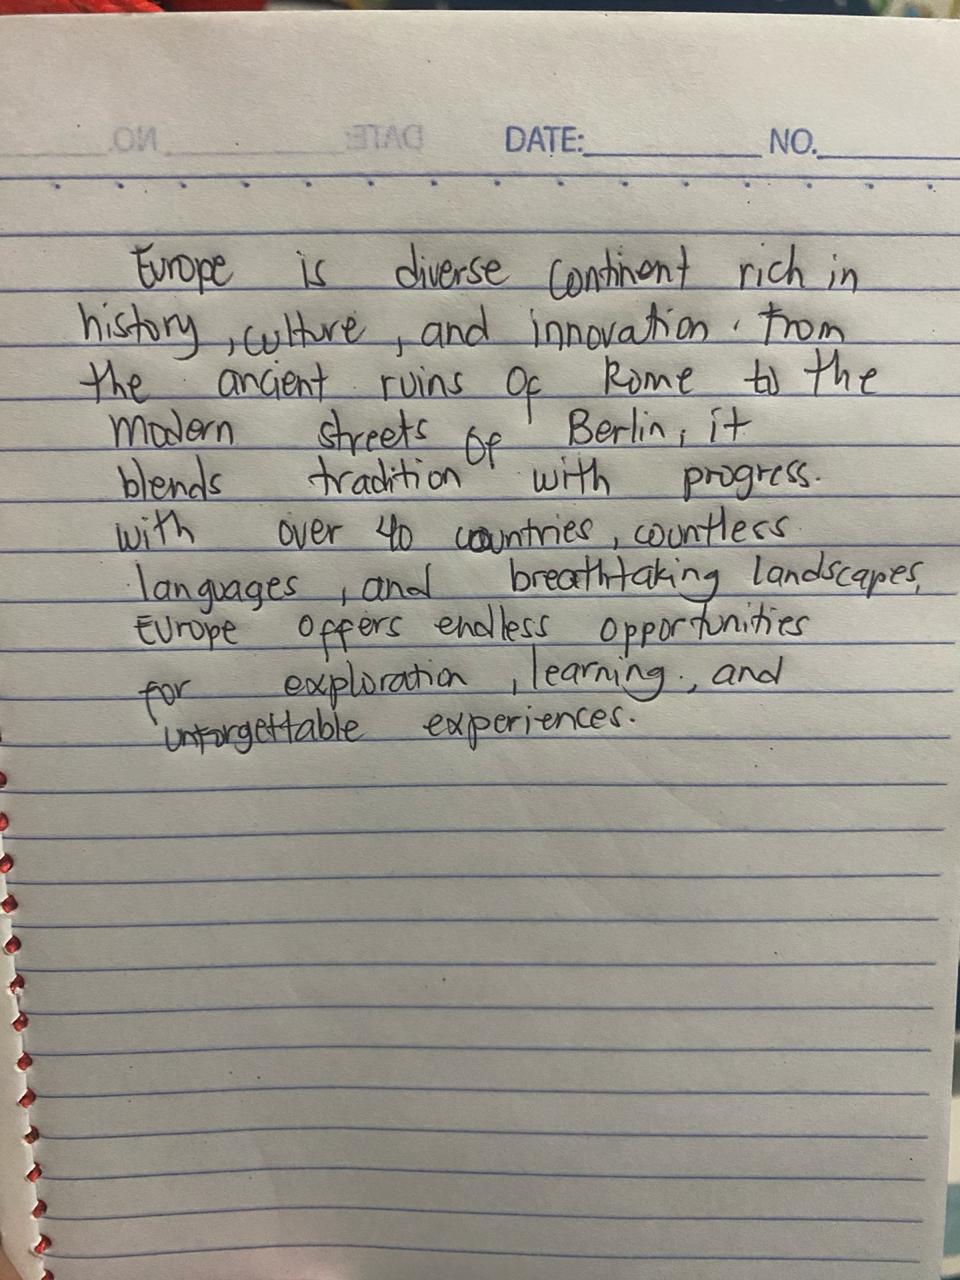 DATE: NO.
Europe is diverse continent rich in
history, culture, and innovation. From
the ancient ruins of Rome to the
modern streets of Berlin, it
blends tradition with progress.
with over 40 countries, countless
languages, and breathtaking landscapes,
Europe offers endless opportunities
for exploration, learning, and
unforgettable experiences.